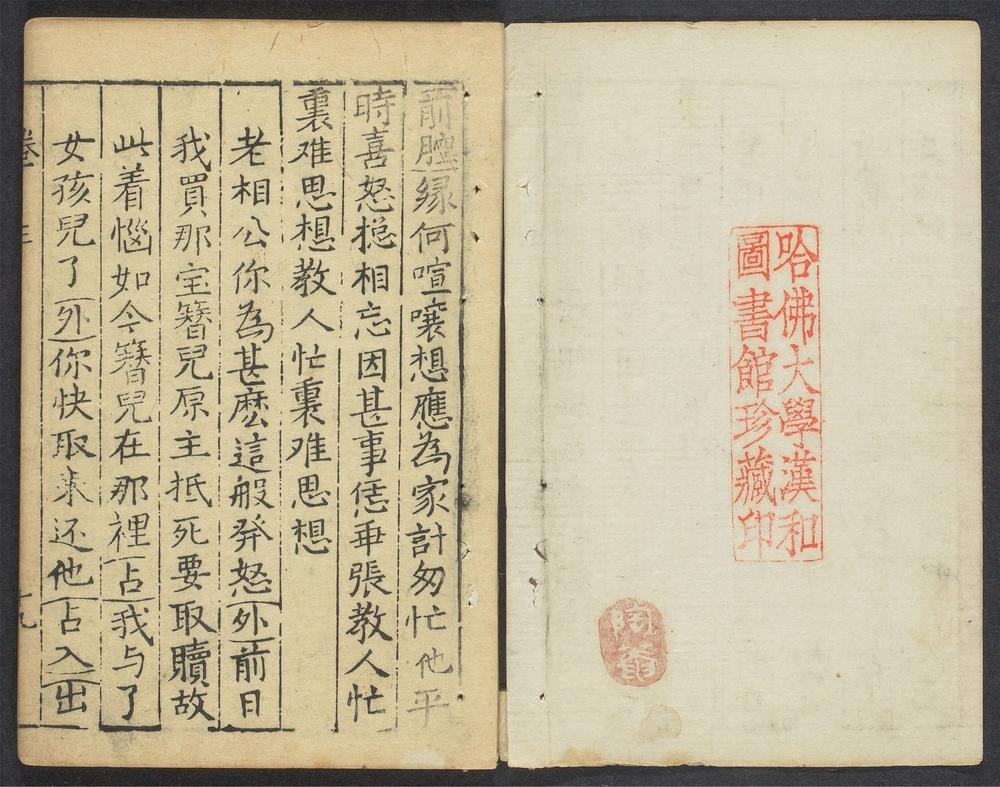 哈佛大學漢和
圖書館珍藏印
前腔緣何喧嚷想應為家計匆忙他平
時喜怒捴相忘因甚事恁乖張教人忙
裏难思想教人忙裏难思想
老相公你為甚麽這般發怒外前日
我買那宝簪兒原主抵死要取贖故
此着惱如今簪兒在那裡占我与了
女孩兒了外你快取来还他占入出
卷三